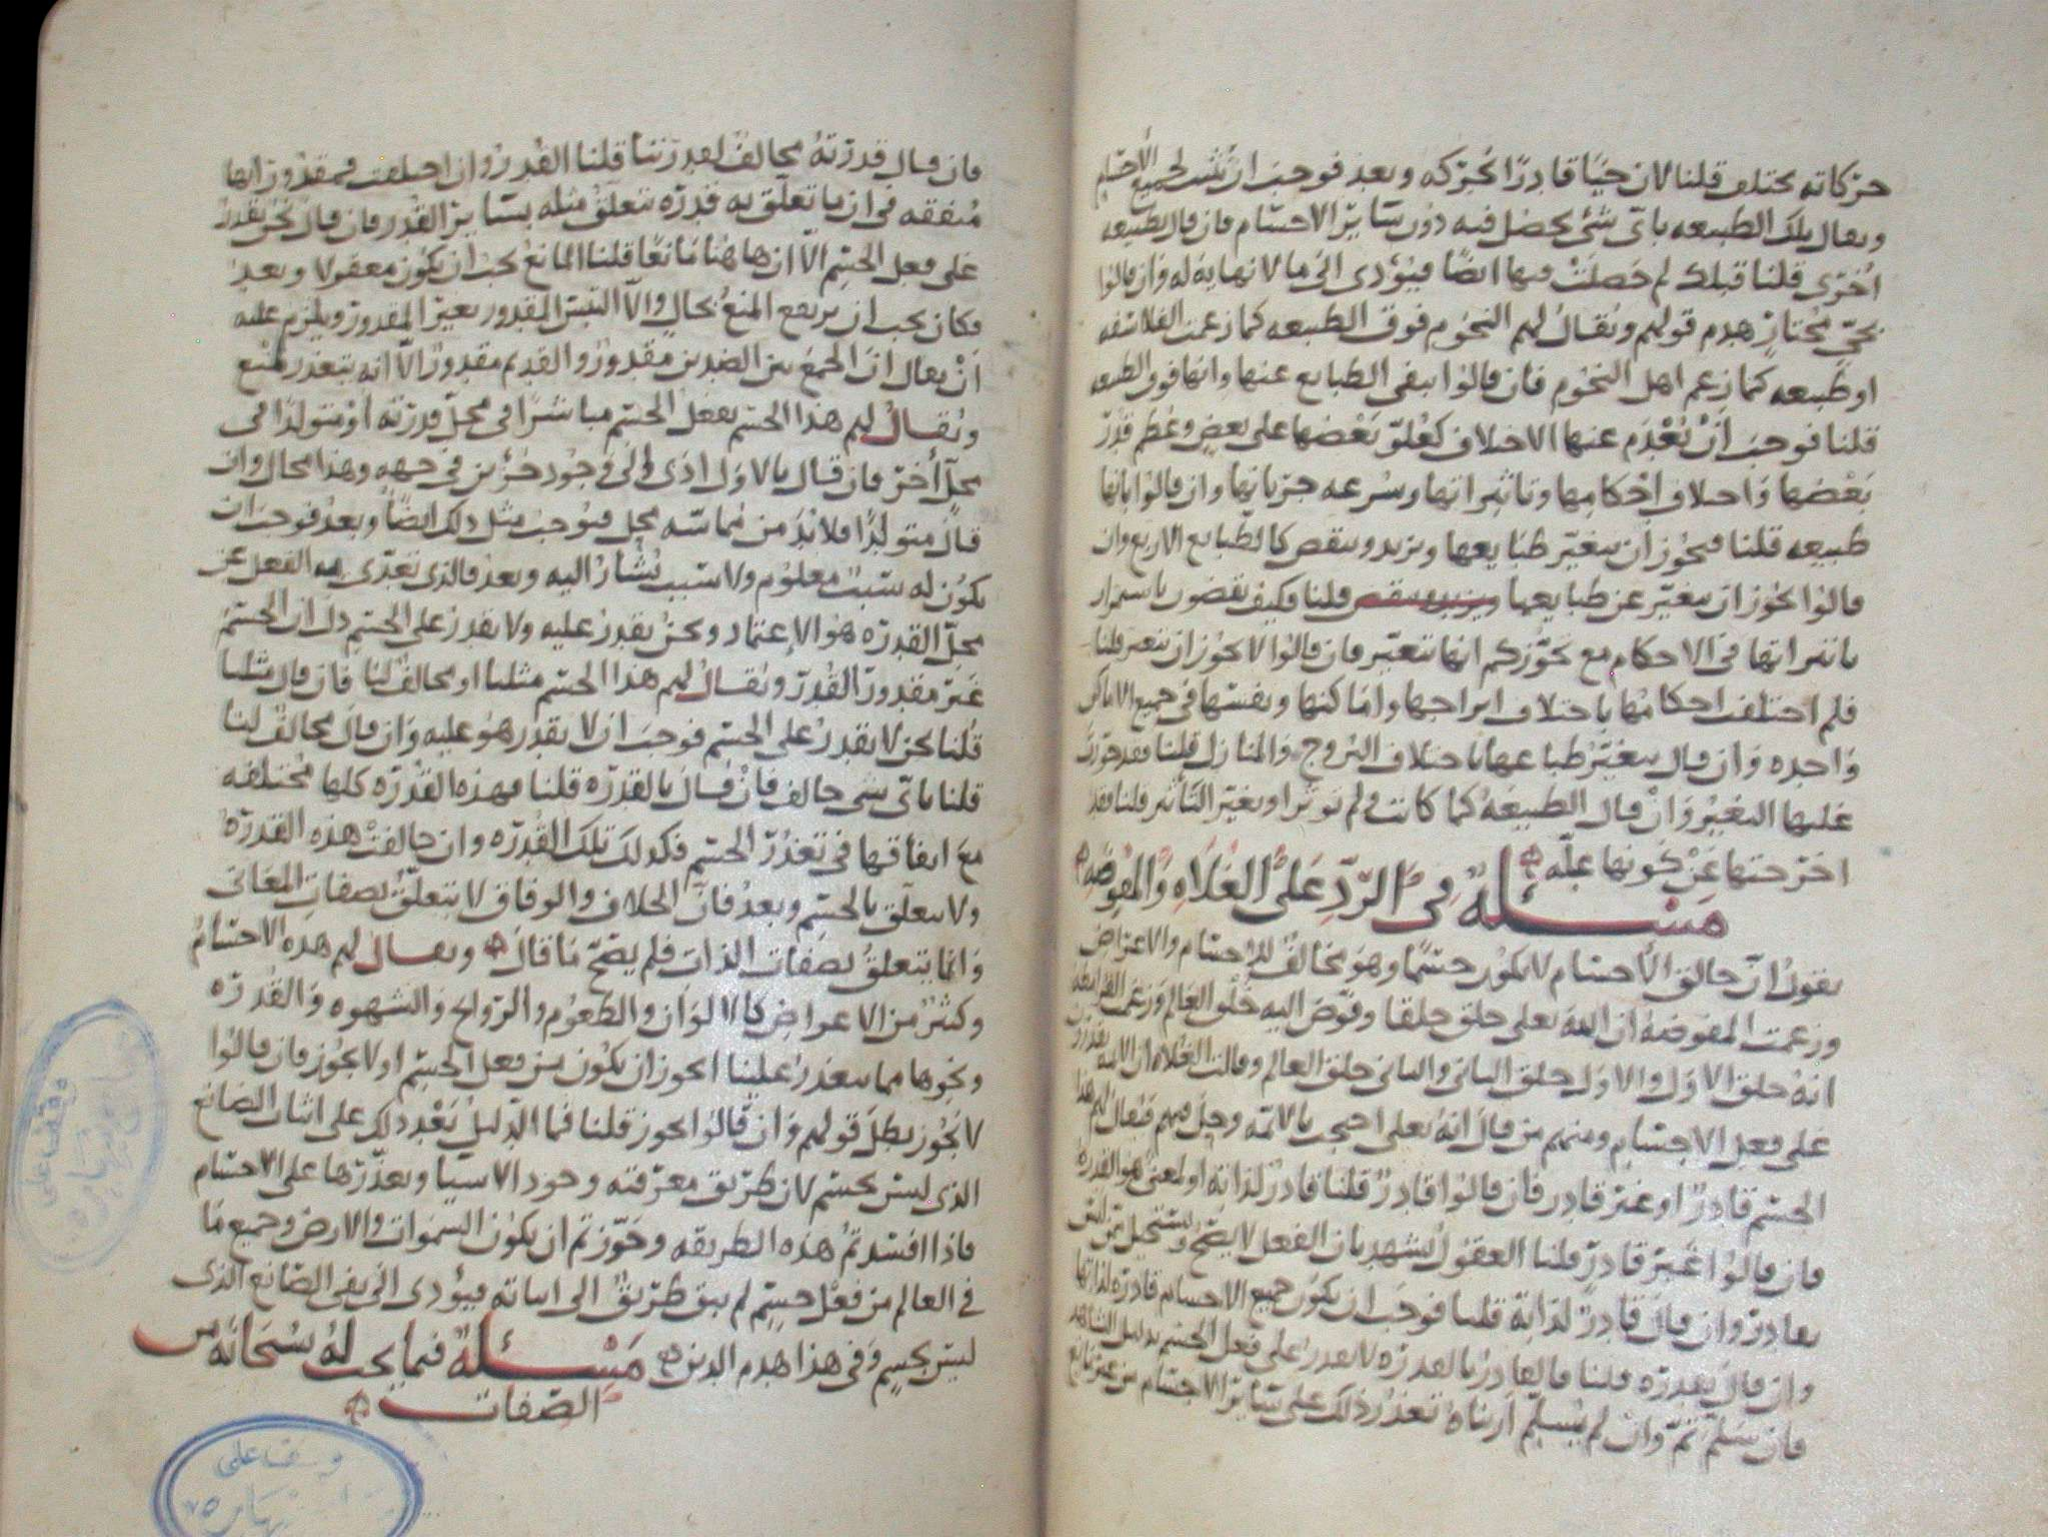 حركاته مختلف قلنا لان حيًا قادرًا يحركه وبعد فوجب ان تثبت لجميع الاجسام
ويقال بلك الطبيعه باى شئ يحصل فيه دون سائر الاجسام فان قال بطبيعه
اخرى قلنا قبلك لم حصلت فيها ايضًا فيؤدى الى ما لا نهايه له وان قالوا
بحى مختار هدم قولهم ويقال لهم النجوم فوق الطبيعه كما زعمت الفلاسفه
او طبيعه كما زعم اهل النجوم فان قالوا ببقى الطبايع عنها وانها فوق الطبيعه
قلنا فوجب ان يعدم عنها الاختلاف كعلو بعضها على بعض وعظم قدر
بعضها واختلاف احكامها وتاثيراتها وسرعه جرياتها وان قالوا بانها
طبيعه قلنا فيجوز ان يتغير طبايعها ويزيد وينقص كالطبايع الاربع وان
قالوا يجوز ان يتغير عن طبايعها ويزيد وينقص قلنا فكيف تقضون باستمرار
تاثيراتها فى الاحكام مع تجوزكم انها تتغير فان قالوا لا يجوز ان تتغير قلنا
فلم اختلفت احكامها باختلاف ابراجها واماكنها ونفسها فى جميع الاماكن
واحده وان قال يتغير طباعها باختلاف البروج والمنازل قلنا فقد جوزت
عليها التغير وان قال الطبيعه كما كانت ولم تؤثر او يغير التأثير قلنا فقد
اخرجتها عن كونها علّه
مسئله فى الرد على الغلاه والمفوضه
يقول ان خالق الاجسام لا يكون جسمًا وهو مخالف للاجسام والاعراض
وزعمت المفوضه ان الله تعلى خلق خلقا وفوض اليه خلق العالم وزعمت الغرابطه
انه خلق الاول والاول خلق الثانى والثانى خلق العالم وقالت الغلاه ان الايمه يقدرون
على فعل الاجسام ومنهم من قال انه تعلى احتجب بالائمه وحل فيهم فيقال لهم هذا
الجسم قادر او غير قادر فان قالوا قادر قلنا قادر لذاته او لمعنى هو القدره
فان قالوا غير قادر قلنا العقول تشهد بان الفعل لا يصح ويستحيل ممن ليس
بقادر وان قال قادر لذاته قلنا فوجب ان يكون جميع الاجسام قادره لذاتها
وان قال بقدره قلنا فالقادر بالقدره لا يقدر على فعل الجسم بدليل الشاهد
فان سلم تم وان لم يسلم اريناه تعذر ذلك على سائر الاجسام من غير مانع
فان قال قدرته مخالف لقدرتنا قلنا القدر وان اختلفت فمقدوراتها
متفقه فى ان ما تعلق به قدره تتعلق مثله بسائر القدر فان قال نحن نقدر
على فعل الجسم الا ان هاهنا مانعًا قلنا المانع يجب ان يكون معقولا وبعد
فكان يجب ان يرتفع المنع بحال والا التبس المقدور بغير المقدور ويلزم عليه
ان يقال ان الجمع بين الضدين مقدور والقديم مقدور الا انه يتعذر لمنع
ويقال لهم هذا الجسم يفعل الجسم مباشرًا فى محل قدرته او متولدًا فى
محل اخر فان قال بالاول ادى الى وجود جزئين فى جهه وهذا محال وان
قال متولدًا فلا بد من مماسه محل فيوجب مثل ذلك ايضًا وبعد فوجب ان
يكون له سبب معلوم ولا سبب يشار اليه وبعد فالذى تعدى به الفعل عن
محل القدره هو الاعتماد ونحن نقدر عليه ولا نقدر على الجسم دل ان الجسم
غير مقدور القدر ويقال لهم هذا الجسم مثلنا او مخالف لنا فان قال مثلنا
قلنا نحن لا نقدر على الجسم فوجب ان لا يقدر هو عليه وان قال مخالف لنا
قلنا باى شى خالف فان قال بالقدره قلنا فهذه القدره كلها مختلفه
مع اتفاقها فى تعذر الجسم فكذلك تلك القدره وان خالفت هذه القدره
ولا يتعلق بالجسم وبعد فان الخلاف والوفاق لا يتعلق بصفات المعانى
وانما يتعلق بصفات الذات فلم يصح ما قال ويقال لهم هذه الاجسام
وكثير من الاعراض كالالوان والطعوم والروايح والشهوه والقدره
ونحوها مما يتعذر علينا ايجوز ان يكون من فعل الجسم او لا يجوز فان قالوا
لا يجوز بطل قولهم وان قالوا يجوز قلنا فما الدليل بعد ذلك على اثبات الصانع
الذى ليس بجسم لان طريق معرفته وجود الاشيا وتعذرها على الاجسام
فاذا افسدتم هذه الطريقه وجوزتم ان يكون السموات والارض وجميع ما
فى العالم من فعل جسم لم يبق طريق الى اثباته فيؤدى الى نفى الصانع الذى
ليس بجسم وفى هذا هدم الدين مسئله فيما يجب له سبحانه من
الصفات
وقف على
وقف على